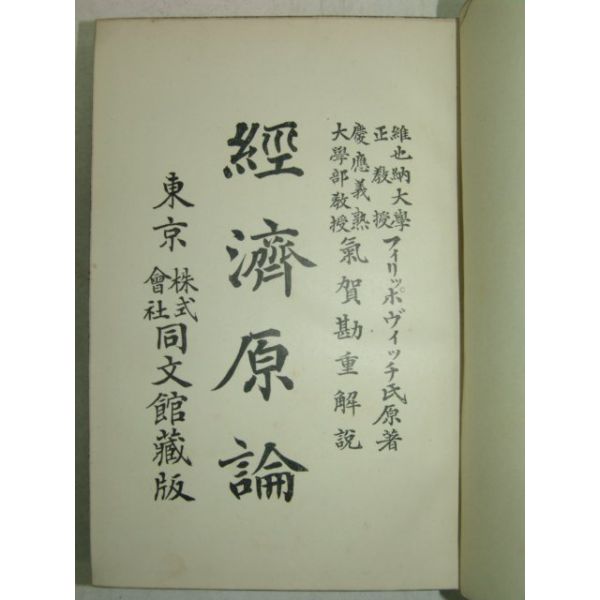 維也納大學
正教授
フィリッポヴィッチ氏原著
慶應義熟
大學部教授
氣賀勘重解説
經濟原論
東京
株式
會社
同文館藏版